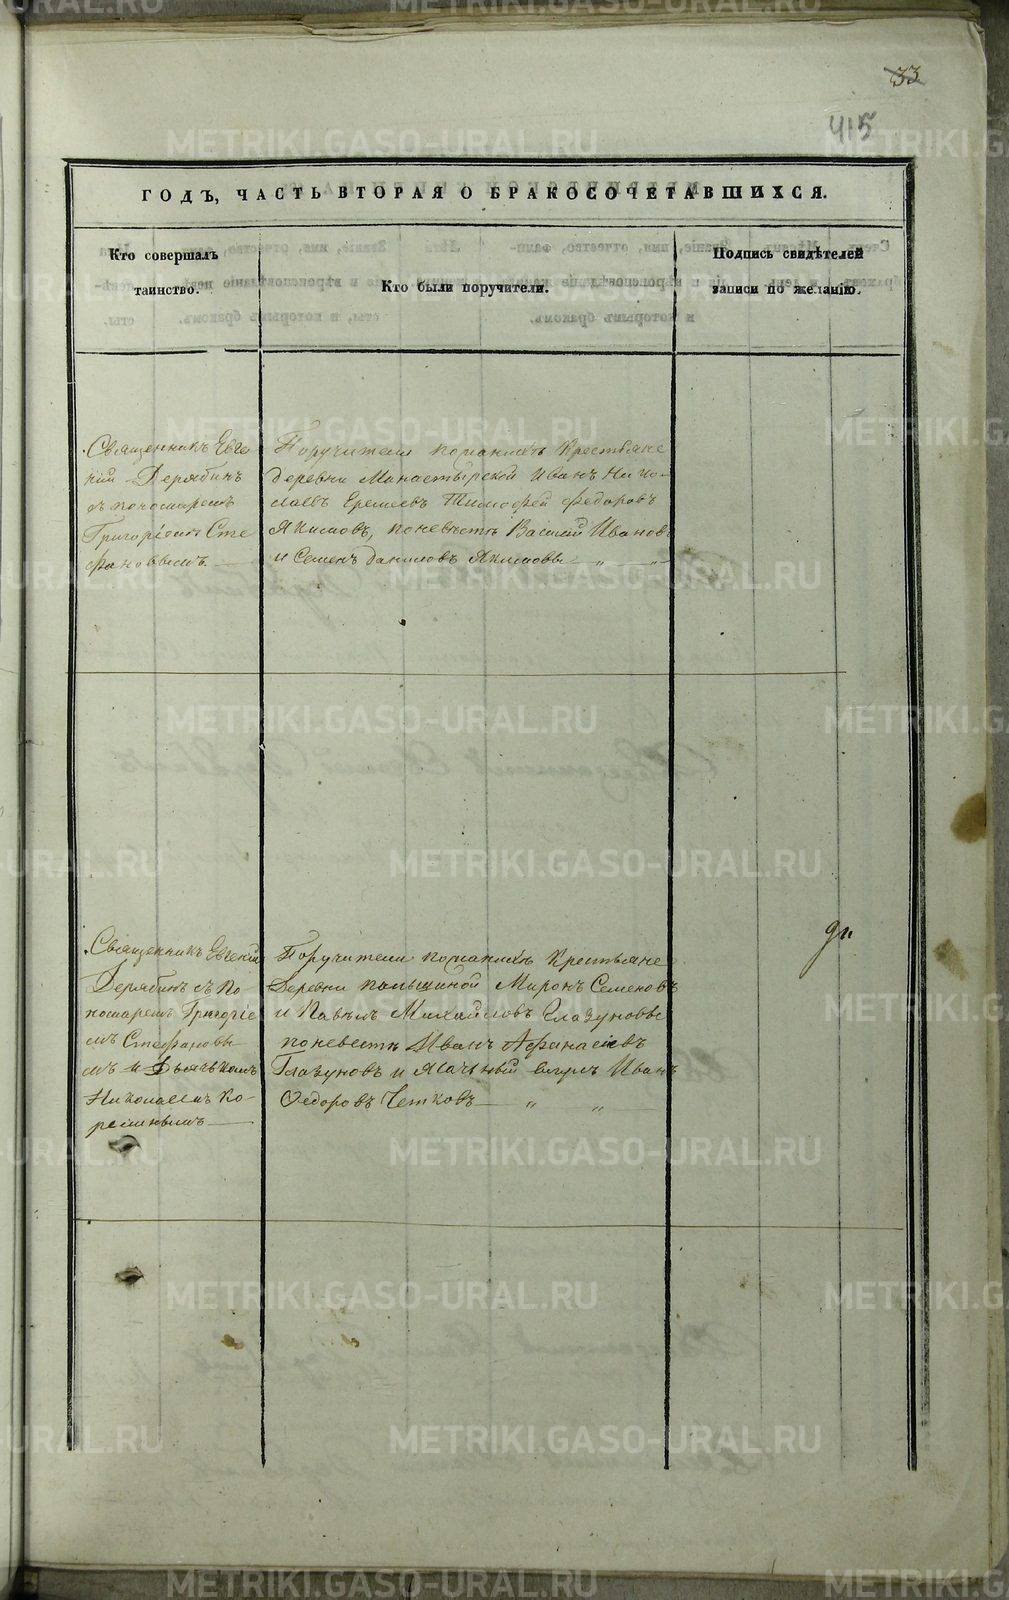 33
415
ГОДЪ, ЧАСТЬ ВТОРАЯ О БРАКОСОЧЕТАВШИХСЯ.
Кто совершалъ
таинство.
Кто были поручители.
Подпись свидѣтелей
записи по желанію.
Священникъ Евге
ній Дерябинъ
съ пономаремъ
Григоріемъ Сте
фановымъ
Поручители по женихѣ Крестьяне
деревни Монастырской Иванъ Ни ко-
лаевъ Еремеевъ Тимофей Федоровъ
Якимовъ, по невѣстѣ Василій Ивановъ
и Семенъ Даниловъ Якимовы
Священникъ Евгеній
Дерябинъ съ По
номаремъ Григоріе
мъ Стефановы
мъ и Дьячькомъ
Николаемъ Ко-
Поручители по женихѣ Крестьяне
Деревни Паньшиной Миронъ Семеновъ
и Павелъ Михайловъ Глазуновы
по невестѣ Иванъ Афанасіевъ
Глазуновъ и Ясачьный Иванъ
Федоровъ Четковъ
METRIKI.GASO-URAL.RU